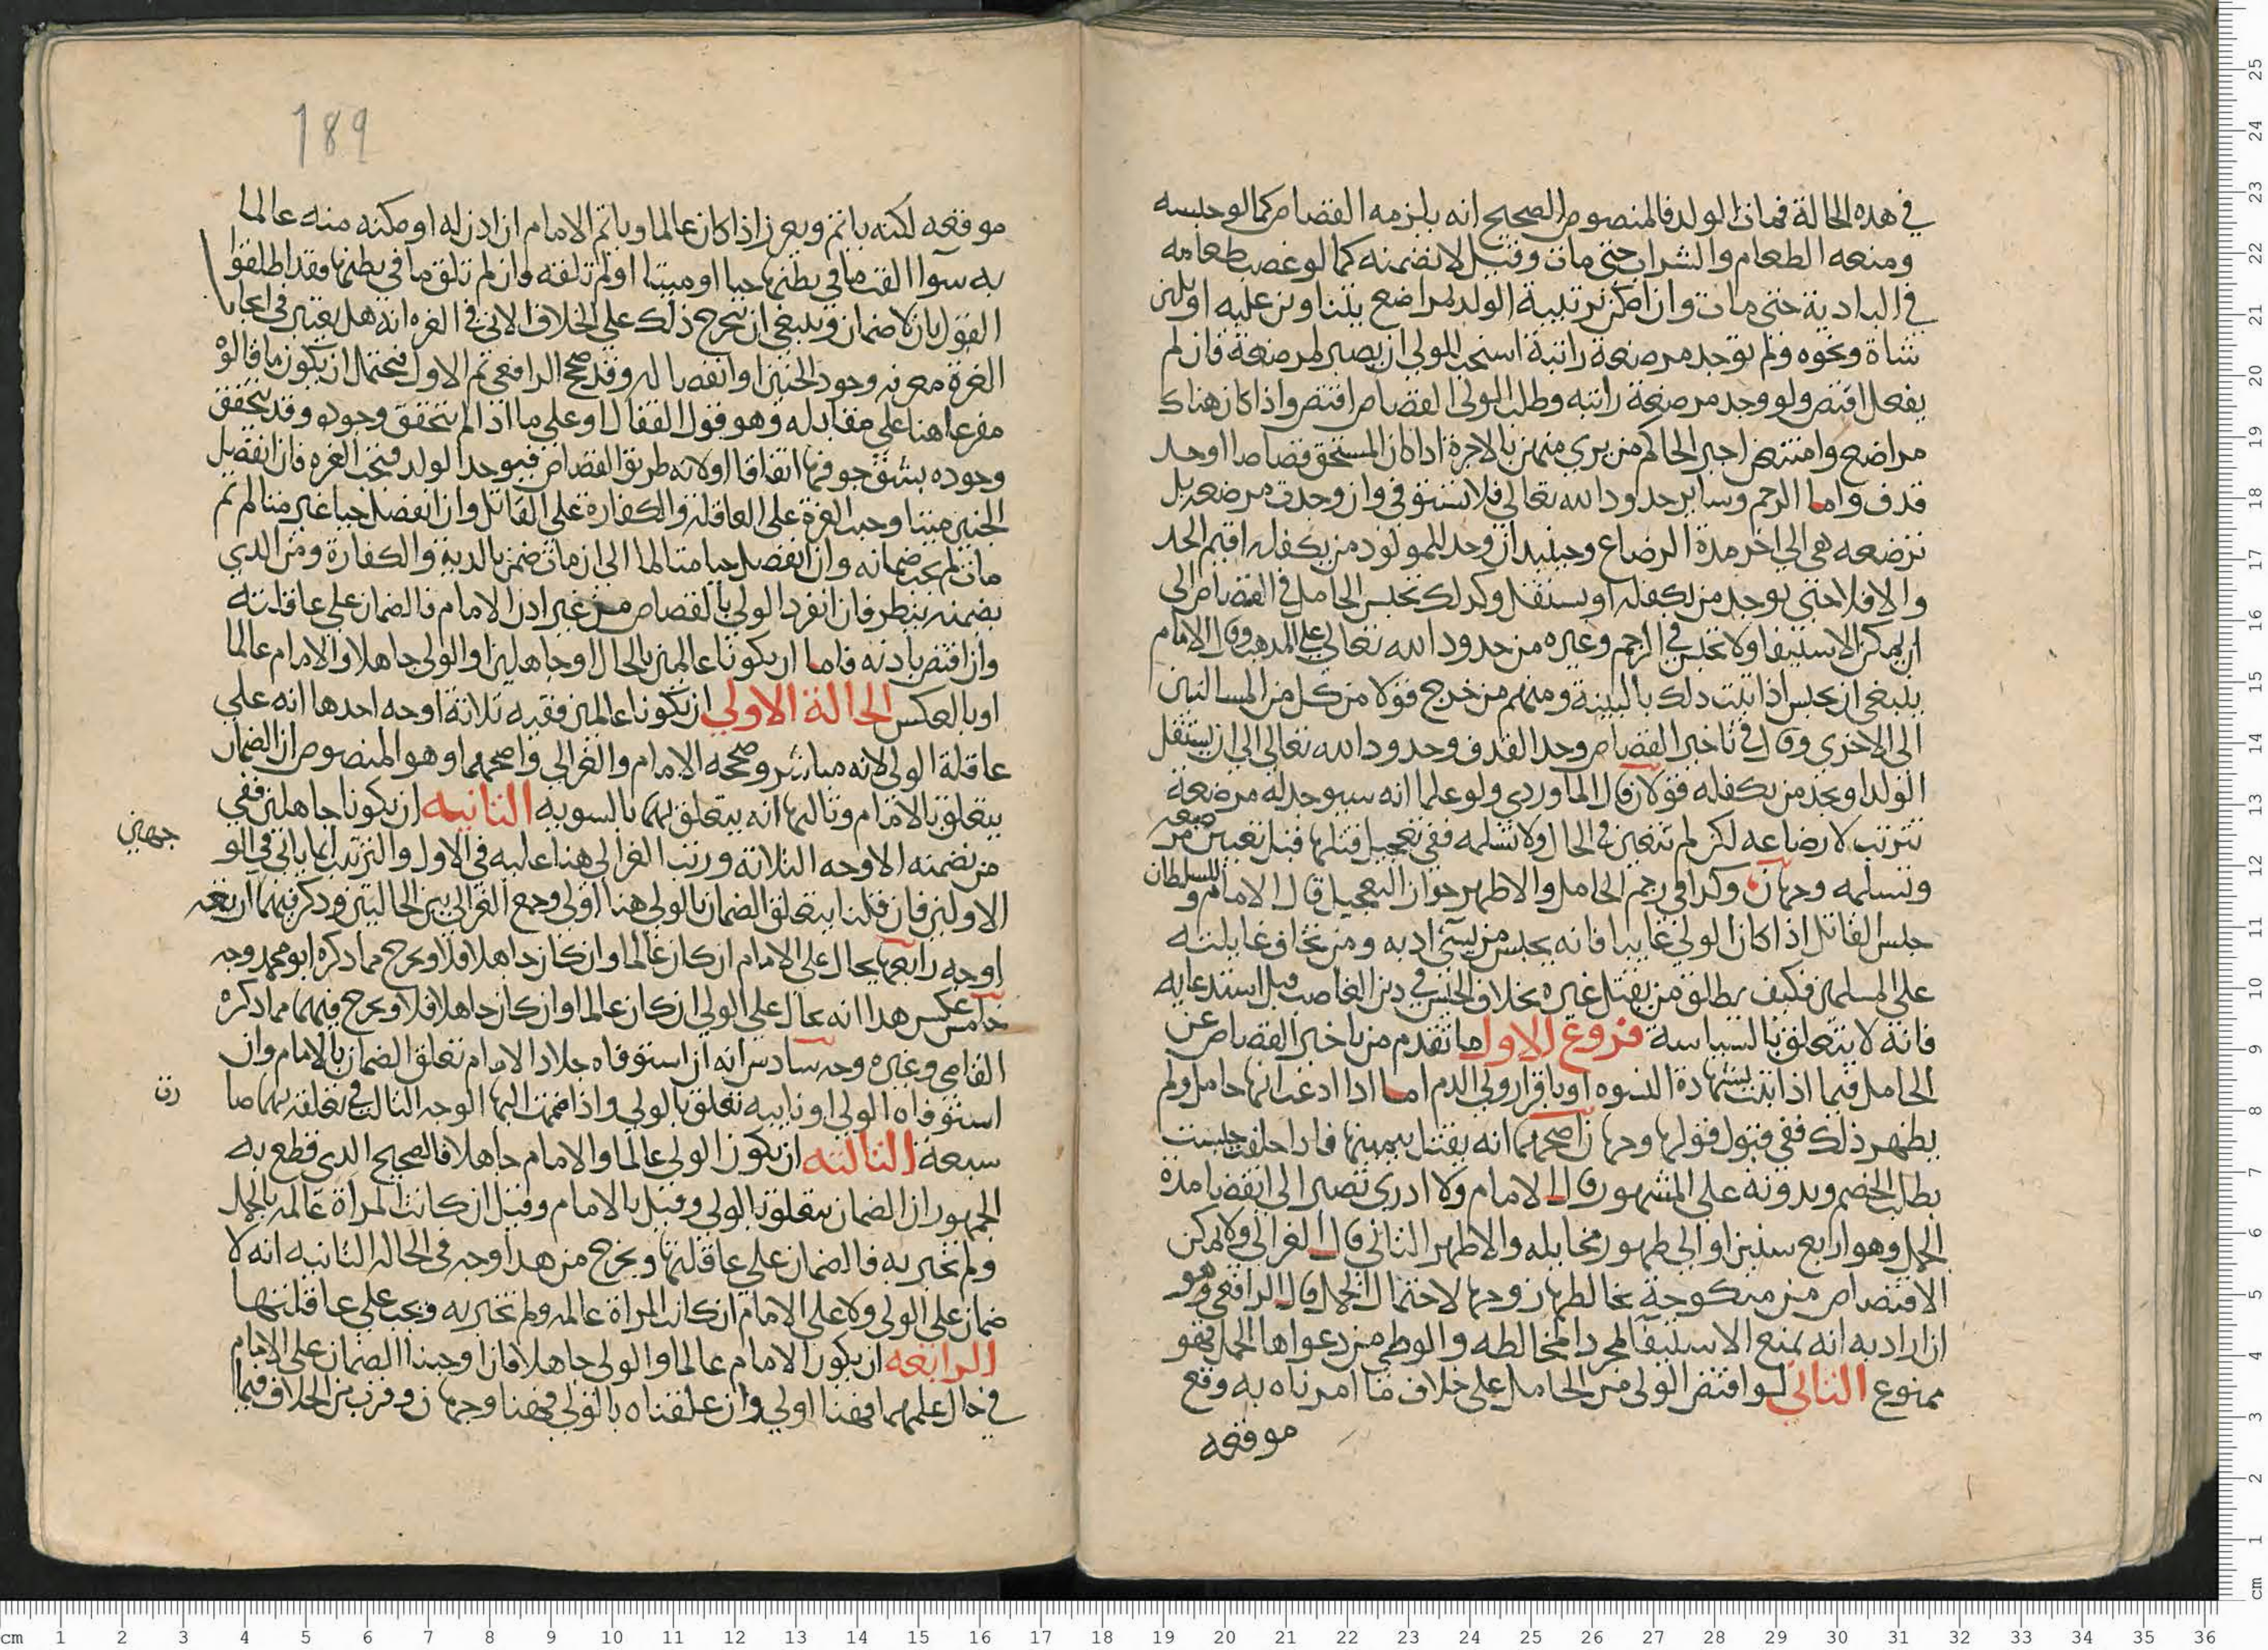 في هذه الحالة فمات الولد فالمنصوص الصحيح انه يلزمه القصاص كما لو حبسه
ومنعه الطعام والشراب حتى مات وقيل لا نضمنه كما لو غصب طعامه
في البادية حتى مات وان امكن تربية الولد بمراضع يتناوبن عليه او بلبن
شاة ونحوه ولم توجد مرضعة راتبة استحب للولي ان يصبر لمرضعة فان لم
يفعل اقتص ولو وجد مرضعة راتبه وطلب الولي القصاص اقتص واذا كان هناك
مراضع وامتنعن اجبر الحاكم من يرى منهن بالاجرة اذا كان المستحق قصاصا او حد
قذف واما الرجم وساير حدود الله تعالى فلا تستوفي وان وجدت مرضعه بل
ترضعه هي الى اخر مدة الرضاع وحينيد ان وجد للمولود من يكفله اقيم الحد
والا فلا حتى يوجد من يكفله او يستقل وكذلك تحبس الحامل في القصاص الى
ان يمكن الاستيفا ولا تحبس في الرجم وغيره من حدود الله تعالى على المذهب وقال الامام
ينبغي ان تحبس اذا ثبت ذلك بالبينة ومنهم من خرج قولا من كل من المسالتين
الى الاخرى وقال في تاخير القصاص وحد القذف وحدود الله تعالى الى ان يستقل
الولد او يجد من يكفله قولان قال الماوردي ولو علمنا انه سيوجد له مرضعة
تترتب لارضاعه لكن لم تتعين في الحال ولا تسلمه ففي تعجيل قتلها قبل تعيين مرضعه
وتسلمه وجهان وكذا في رجم الحامل والاظهر جواز التعجيل قال الامام وللسلطان
حبس القاتل اذا كان الولي غايبا فانه يحبس من يسيء ادبه ومن يخاف غايلته
على المسلمين فكيف يطلق من يقتل غيره بخلاف الحبس في دين الغايب قبل استدعايه
فانه لا يتعلق بالسياسة فروع الاول ما تقدم من تاخير القصاص عن
الحامل فيما اذا ثبت بشهادة النسوه او باقرار ولي الدم اما اذا ادعت انها حامل ولم
يظهر ذلك ففي قبول قولها وجهان اصحهما انه يقبل بيمينها فاذا حلفت حبست
بطلب الخصم وبدونه على المشهور قال الامام ولا ادري تصبر الى انقضا مدة
الحمل وهو اربع سنين او الى ظهور مخايله والاظهر الثاني قال الغزالي ولا يمكن
الاقتصاص من منكوحة يخالطها زوجها لاحتمال الحمل قال الرافعي وهو
ان اراد به انه يمنع الاستيفا لمجرد المخالطه والوطي من دعواها الحمل فهو
ممنوع الثاني لو اقتص الولي من الحامل على خلاف ما امرناه به وقع
موقعه
189
موقعه لكنه ياثم ويعزر اذا كان عالما وياثم الامام ان اذن له او مكنه منه عالما
به سوا القت ما في بطنها حيا او ميتا او لم تلقه وان لم تلق ما في بطنها فقد اطلقوا
القول بان لا ضمان وينبغي ان يخرج ذلك على الخلاف الاتي في الغره انه هل يعتبر في ايجاب
الغرة معرفه وجود الجنين او انفصاله وقد صحح الرافعي ثم الاول فيحتمل ان يكون ما قالوه
مفرعا هنا على مقابله وهو قول القفال او على ما اذا لم يتحقق وجوده وقد يتحقق
وجوده بشق جوفها اتفاقا او لانه طريق القصاص فيوجد الولد فتجب الغره فان انفصل
الجنين ميتا وجب الغرة على العاقله والكفارة على القاتل وان انفصل حيا غير متالم ثم
مات لم يجب ضمانه وان انفصل حيا متالما الى ان مات ضمن بالدية والكفارة ومن الذي
يضمنه ينظر فان انفرد الولي بالقصاص من غير اذن الامام فالضمان على عاقلته
وان اقتص باذنه فاما ان يكونا عالمين بالحال او جاهلين او الولي جاهلا والامام عالما
او بالعكس الحالة الاولى ان يكونا عالمين ففيه ثلاثة اوجه احدها انه على
عاقلة الولي لانه مباشر وصححه الامام والغزالي واصحهما وهو المنصوص ان الضمان
يتعلق بالامام وثالثها انه يتعلق بهما بالسويه الثانيه ان يكونا جاهلين ففي
من نضمنه الاوجه الثلاثة ورتب الغزالي هنا عليه في الاول والترتيب انما ياتي في الو
جهين
الاولين فان قلنا يتعلق الضمان بالولي هنا اولى وجمع الغزالي بين الحالتين وذكر فيهما اربعه
اوجه رابعها يحال على الامام ان كان عالما وان كان جاهلا فلا ويخرج مما ذكره ابو محمد وجه
خامس عكس هذا انه يحال على الولي ان كان عالما وان كان جاهلا فلا ويخرج فيهما مما ذكره
القاضي وغيره وجه سادس انه ان استوفاه جلاد الامام تعلق الضمان بالامام وان
استوفاه الولي او نايبه تعلق بالولي واذا ضممت اليها الوجه الثالث في تعلقه بهما صا
رت
سبعة الثالثه ان يكون الولي عالما والامام جاهلا فالصحيح الذي قطع به
الجمهور ان الضمان يتعلق بالولي وقيل بالامام وقيل ان كانت المراة عالمه بالحمل
ولم تخبر به فالضمان على عاقلتها ويخرج من هذا وجه في الحاله الثانيه انه لا
ضمان على الولي ولا على الامام ان كانت المراة عالمه ولم تخبر به ويجب على عاقلتها
الرابعه ان يكون الامام عالما والولي جاهلا فان اوجبنا الضمان على الامام
في حال علمهما فههنا اولى وان علقناه بالولي فههنا وجهان وقرب من الخلاف فيما